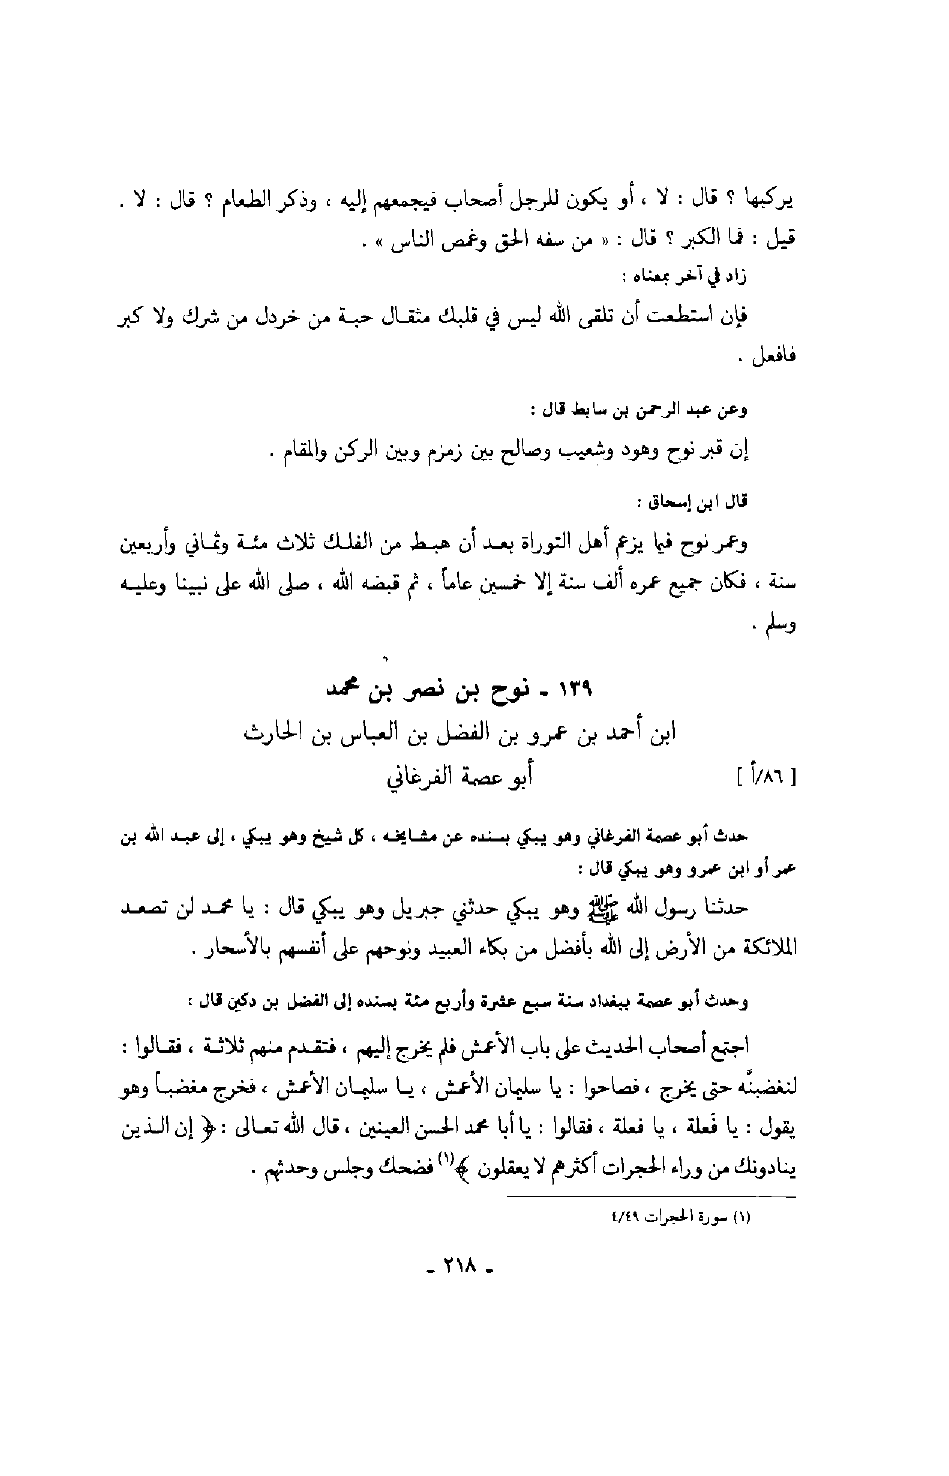 يركبها ؟ قال : لا ، أو يكون للرجل أصحاب فيجمعهم إليه ، وذكر الطعام ؟ قال : لا .
قيل : فما الكبر ؟ قال : « من سفه الحق وغمص الناس » .
زاد في آخر بمعناه :
فإن استطعت أن تلقى الله ليس في قلبك مثقال حبة من خردل من شرك ولا كبر
فافعل .
وعن عبد الرحمن بن سابط قال :
إن قبر نوح وهود وشعيب وصالح بين زمزم وبين الركن والمقام .
قال ابن إسحاق :
وعمر نوح فيما يزعم أهل التوراة بعد أن هبط من الفلك ثلاث مئة وثماني وأربعين
سنة ، فكان جميع عمره ألف سنة إلا خمسين عاماً ، ثم قبضه الله ، صلى الله على نبينا وعليه
وسلم .
١٣٩ - نوح بن نصر بن محمد
ابن أحمد بن عمرو بن الفضل بن العباس بن الحارث
[ ٨٦/أ ] أبو عصمة الفرغاني
حدث أبو عصمة الفرغاني وهو يبكي بسنده عن مشايخه ، كل شيخ وهو يبكي ، إلى عبد الله بن
عمر أو ابن عمرو وهو يبكي قال :
حدثنا رسول الله ﷺ وهو يبكي حدثني جبريل وهو يبكي قال : يا محمد لن تصعد
الملائكة من الأرض إلى الله بأفضل من بكاء العبيد ونوحهم على أنفسهم بالأسحار .
وحدث أبو عصمة ببغداد سنة سبع عشرة وأربع مئة بسنده إلى الفضل بن دكين قال :
اجتمع أصحاب الحديث على باب الأعمش فلم يخرج إليهم ، فتقدم منهم ثلاثة ، فقالوا :
لنغضبنَّه حتى يخرج ، فصاحوا : يا سليمان الأعمش ، يا سليمان الأعمش ، فخرج مغضباً وهو
يقول : يا فَعلة ، يا فعلة ، فقالوا : يا أبا محمد الحسن العينين ، قال الله تعالى : ﴿ إن الذين
ينادونك من وراء الحجرات أكثرهم لا يعقلون ﴾(١) فضحك وجلس وحدثهم .
(١) سورة الحجرات ٤/٤٩
- ٢١٨ -